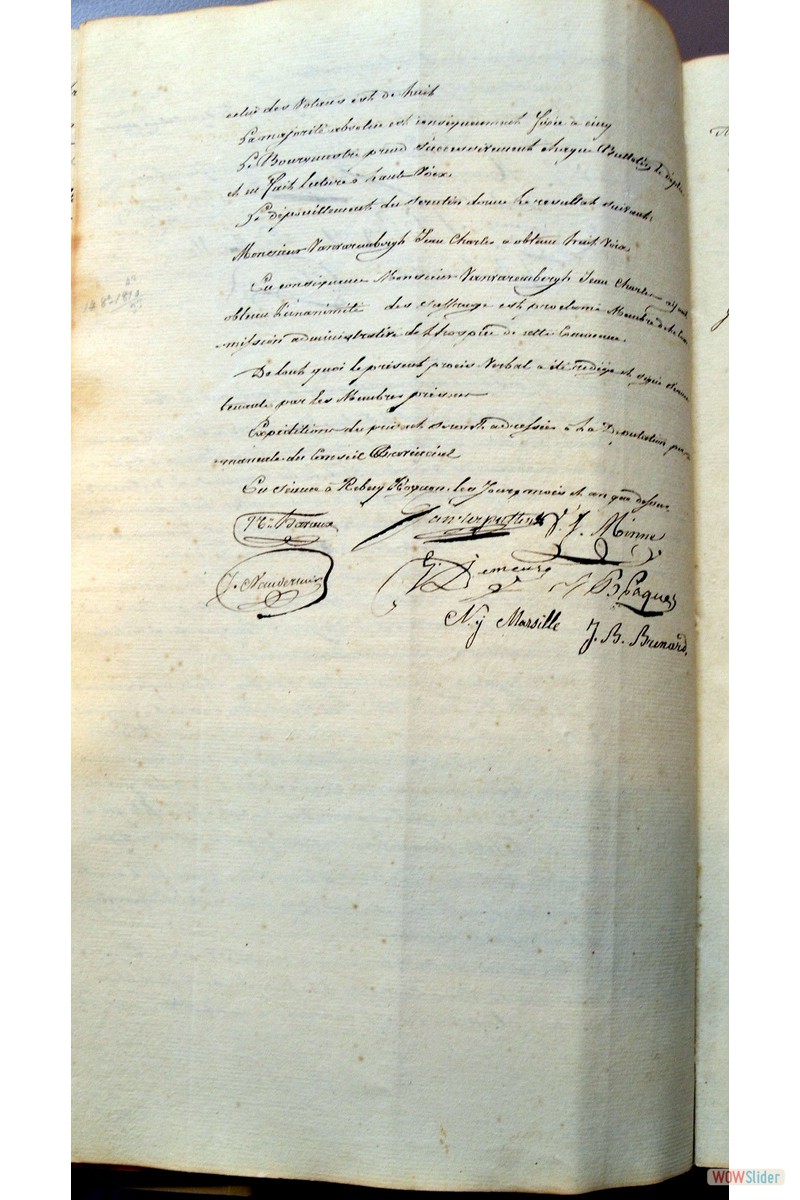 celui des Votans est de huit
La majorité absolue est conséquemment fixée à cinq
Le Bourgmestre prend successivement chaque Bulletin, le déplie
et en fait lecture à haute Voix.
Le dépouillement du scrutin donne le résultat suivant:
Monsieur Vanvarembergh Jean Charles a obtenu huit Voix.
En conséquence Monsieur Vanvarembergh Jean Charles ayant
obtenu l'unanimité des suffrage est proclamé Membre de la Com
mission administrative de l'hospice de cette Commune.
De tout quoi le présent procès Verbal a été rédigé et signé séance
tenante par les Membres présens
Expéditions du présent seront adressées à La Députation per
manente du Conseil Provincial
En séance à Rebecq Rognon, les Jour, mois et an que dessus.
J. J. Minne
Demeur
J B Paques
N.j Marsille J. B. Brenard,
WOWSlider